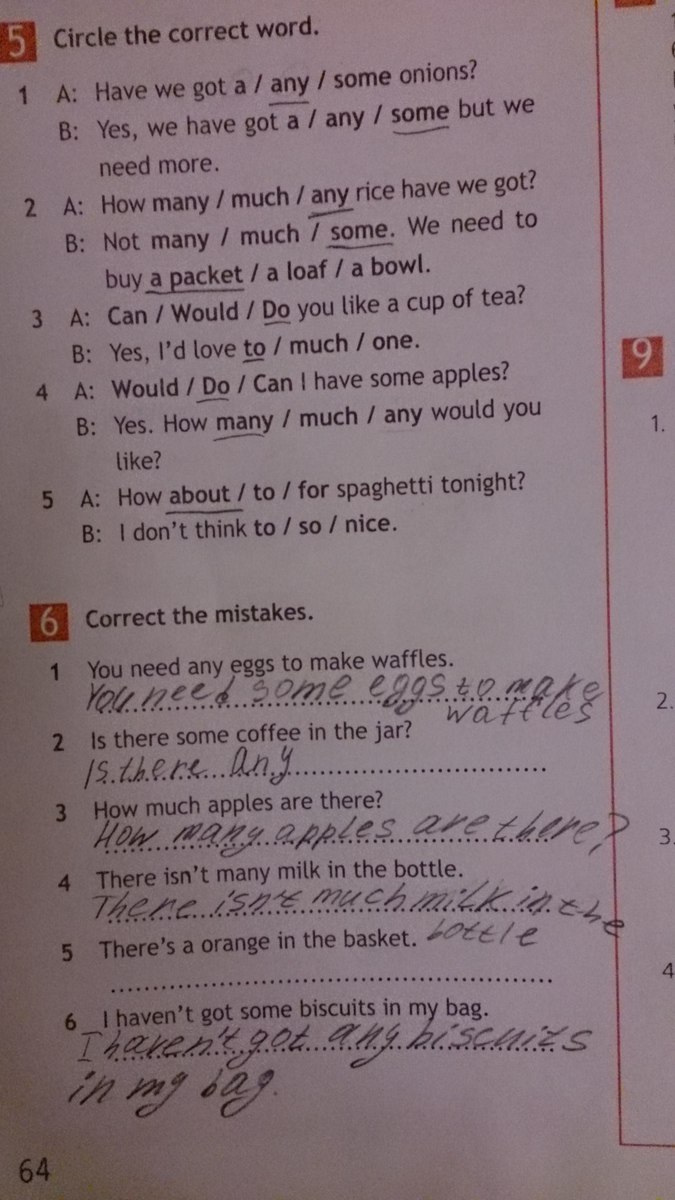 5 Circle the correct word.
1 A: Have we got a / any / some onions?
B: Yes, we have got a / any / some but we
need more.
2 A: How many / much / any rice have we got?
B: Not many / much / some. We need to
buy a packet / a loaf / a bowl.
3 A: Can / Would / Do you like a cup of tea?
B: Yes, I'd love to / much / one.
4 A: Would / Do / Can I have some apples?
B: Yes. How many / much / any would you
like?
5 A: How about / to / for spaghetti tonight?
B: I don't think to / so / nice.
6 Correct the mistakes.
1 You need any eggs to make waffles.
You need some eggs to make
waffles
2 Is there some coffee in the jar?
Is there any
3 How much apples are there?
How many apples are there?
4 There isn't many milk in the bottle.
There isn't much milk in the
bottle
5 There's a orange in the basket.
6 I haven't got some biscuits in my bag.
I haven't got any biscuits
in my bag.
64
9
1.
2.
3.
4